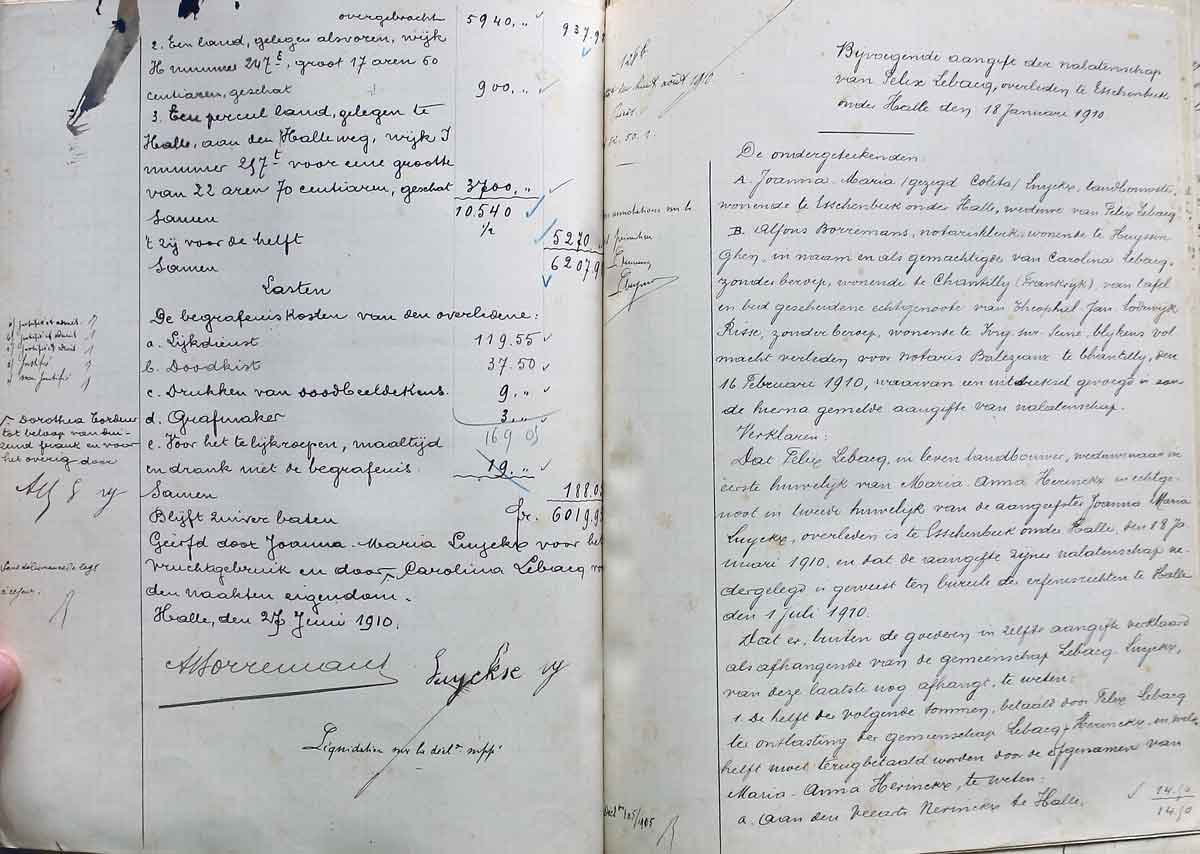 overgebracht 5940,.. 937.9
2. Een land, gelegen alsvoren, wijk
H nummer 247, groot 17 aren 60
centiaren, geschat 900,..
3. Een perceel land, gelegen te
Halle, aan den Halleweg, wijk I
nummer 257 voor eene grootte
van 22 aren 70 centiaren, geschat 3700,..
Samen 10.540
't zij voor de helft 1/2 5270
Samen 6207.9
Lasten
De begrafeniskosten van den overledene:
a. Lijkdienst 119.55
b. Doodkist 37.50
c. Drukken van doodbeeldekens 9,..
d. Grafmaker 3,..
169 05
e. Voor het te lijkroepen, maaltijd
en drank met de begrafenis: 19,..
Samen 188.0
Blijft zuiver baten fr. 6019.9
Geërfd door Joanna-Maria Luyckx voor het
vruchtgebruik en door Carolina Lebacq
den naakten eigendom.
Halle, den 27 Juni 1910.
ABorremans Luyckx
Liquidation sur la
Dorothea
tot beloop van
zend frank en voor
het overig door
Bijvoegende aangifte der nalatenschap
van Felix Lebacq, overleden te Esschenbeek
onder Halle den 18 Januari 1910.
De ondergeteekenden:
A. Joanna-Maria (gezegd Coleta) Luyckx, landbouwster,
wonende te Esschenbeek onder Halle, weduwe van Felix Lebacq
B. Alfons Borremans, notarisklerk, wonende te Huyssin-
ghen, in naam en als gemachtigde van Carolina Lebacq,
zonder beroep, wonende te Chantilly (Frankrijk), van tafel
en bed gescheidene echtgenoote van Theophiel-Jan-Lodewijk
Risse, zonder beroep, wonende te Ivry sur Seine, blijkens vol
macht verleden voor notaris te Chantilly, den
16 Februari 1910, waarvan een uittreksel gevoegd is aan
de hierna gemelde aangifte van nalatenschap.
Verklaren:
Dat Felix Lebacq, in leven landbouwer, weduwnaar in
eerste huwelijk van Maria-Anna Herinckx en echtge-
noot in tweede huwelijk van de aangeefster Joanna-Maria
Luyckx, overleden is te Esschenbeek onder Halle, den 18 Ja
nuari 1910, en dat de aangifte zijner nalatenschap ne-
dergelegd is geweest ten bureele der erfenisrechten te Halle
den 1 juli 1910.
Dat er, buiten de goederen in zelfde aangifte verklaard
als afhangende van de gemeenschap Lebacq-Luyckx,
van deze laatste nog afhangt, te weten:
1. De helft der volgende sommen, betaald door Felix Lebacq
ter ontlasting der gemeenschap Lebacq-Herinckx, en welke
helft moet terugbetaald worden door de erfgenamen van
Maria-Anna Herinckx, te weten:
a. Aan den Veearts Nerinckx te Halle. 14.50
14.50